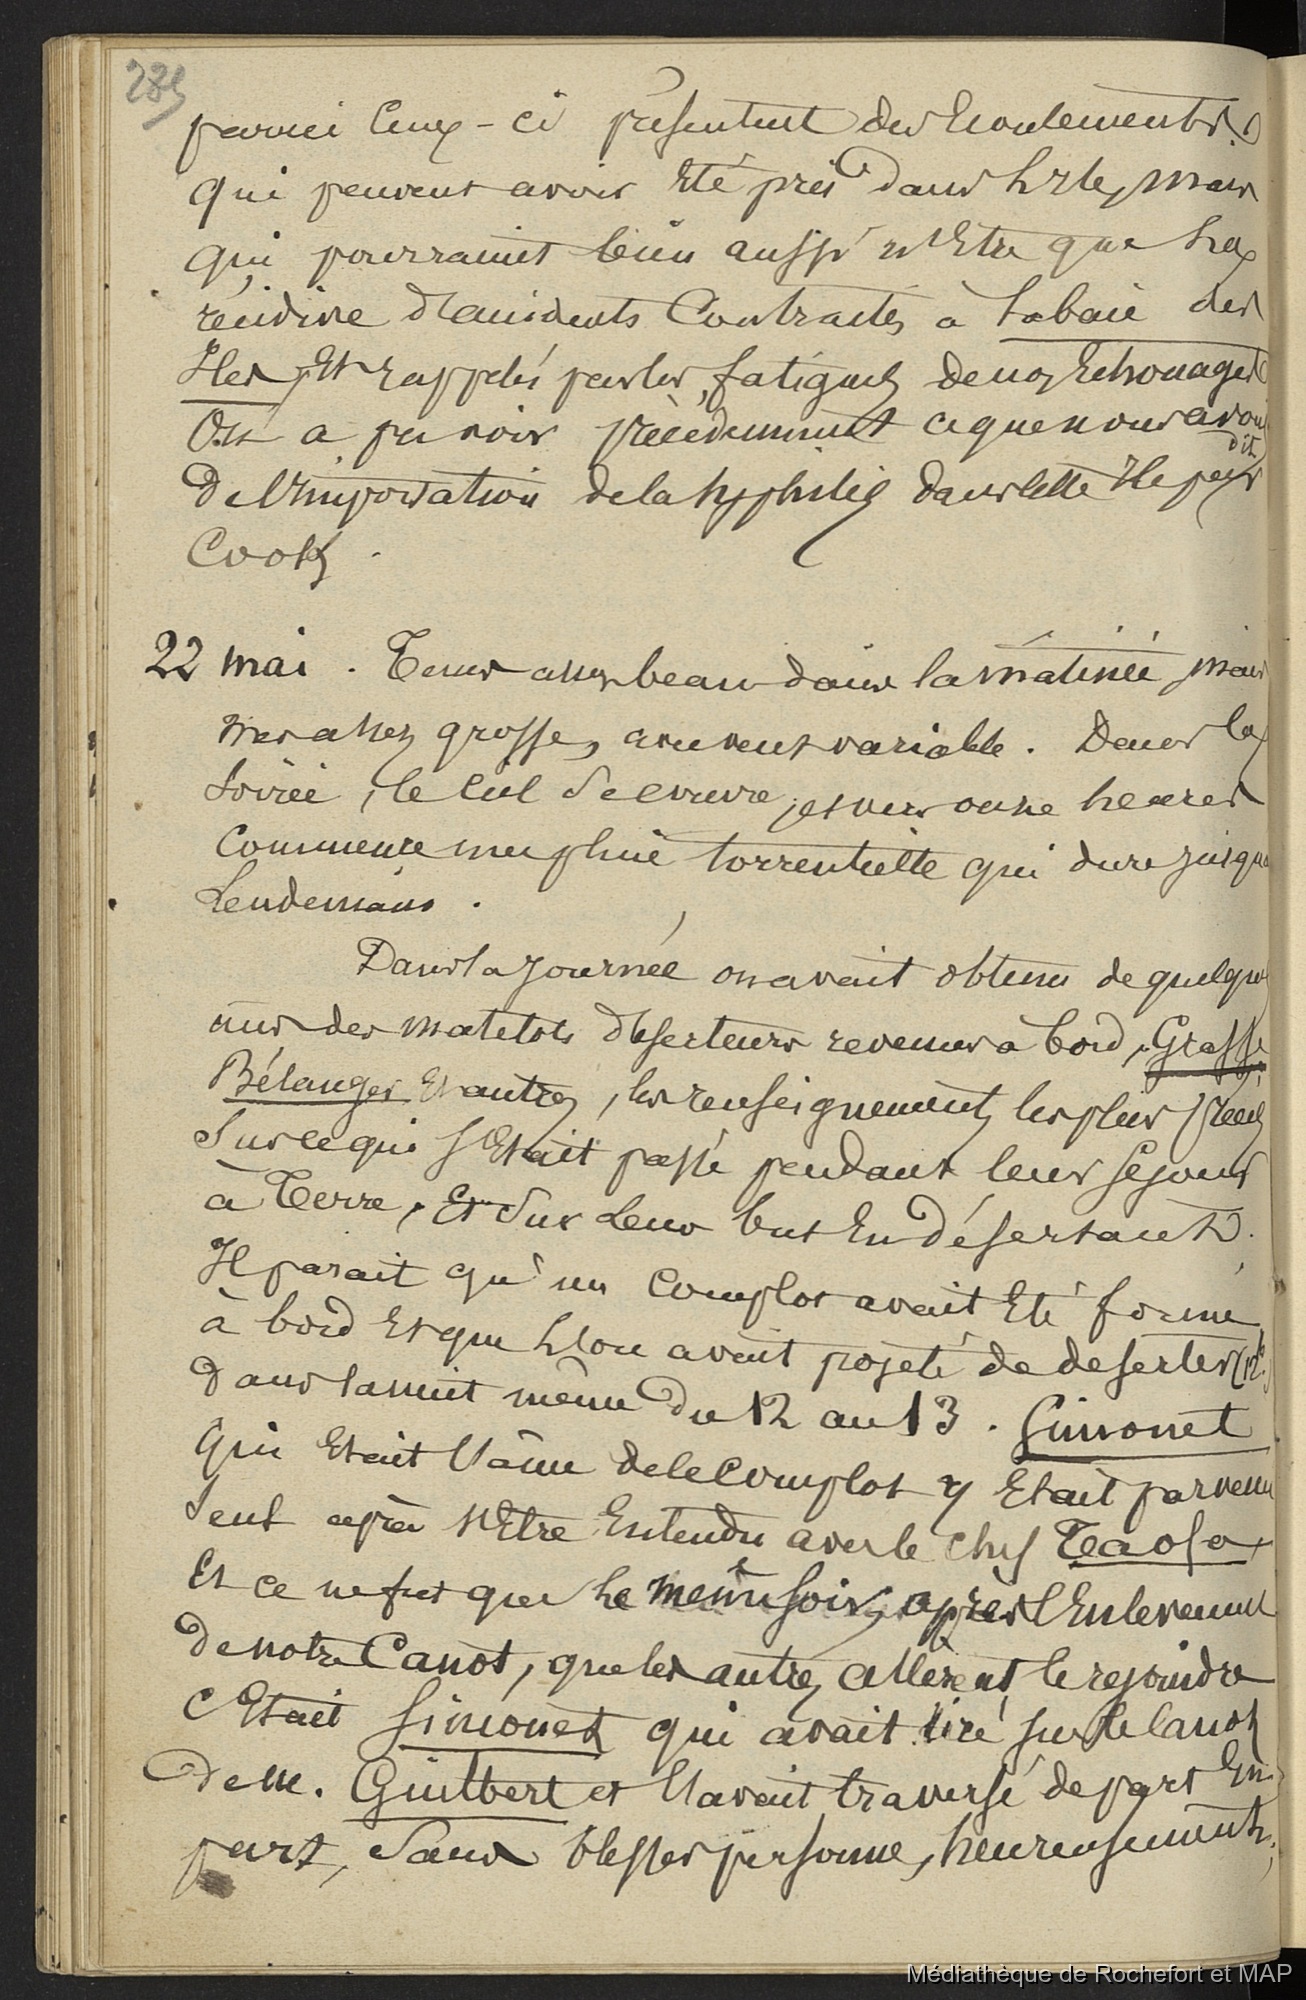 285
parmi ceux-ci présentent des Ecoulements
qui peuvent avoir Eté pris dans l'Ile, mais
qui pourraient bien aussi n'Etre que la
récidive d'accidents Contractés à la baie des
Iles, Et rappelés par les fatigues de nos Echouages
On a pu voir précédemment ce que nous avons
dit
De l'importation de la syphilis dans cette Ile par
Cook.
22 mai . Tems assez beau dans la matinée, mais
mer assez grosse, avec vent variable. Dans la
soirée, le ciel se couvre, et vers onze heures
Commence une pluie torrentielle qui dure jusqu'au
Lendemain.
Dans la journée on avait obtenu de quelques
uns des matelots déserteurs revenus à bord, Grasse
Bélanger Et autres, les renseignements les plus précis
Sur ce qui s'Etait passé pendant leur séjour
à Terre, Et Sur Leur but En désertant.
Il parait qu'un Complot avait Eté formé
à bord Et que l'on avait projeté de deserter (12
Dans la nuit même Du 12 au 13. Simonet
Qui Etait l'âme de ce Complot y Etait parvenu
Seul après s'Etre Entendu avec le chef
Et ce ne fut que le même soir, après l'Enlevement
De notre Canot, que les autres allèrent le rejoindre
C'Etait Simonet qui avait tiré sur le Canot
De M. Guilbert et l'avait traversé de part En
part, Sans blesser personne, heureusement,
Médiathèque de Rochefort et MAP